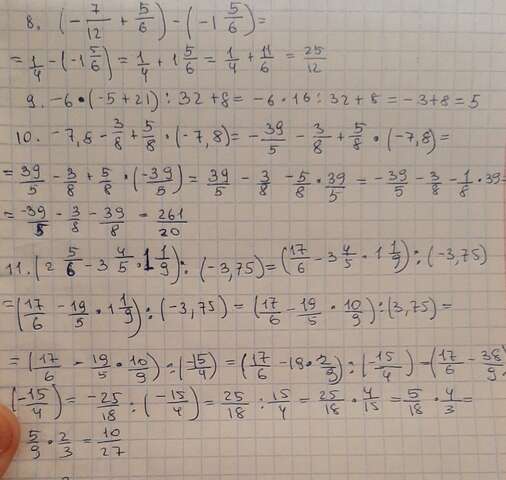 8. (-7/12 + 5/6) - (-1 5/6) =
= 1/4 - (-1 5/6) = 1/4 + 1 5/6 = 1/4 + 11/6 = 25/12
9. -6 • (-5+21) : 32+8 = -6 • 16 : 32+8 = -3+8 = 5
10. -7,8 - 3/8 + 5/8 • (-7,8) = -39/5 - 3/8 + 5/8 • (-7,8) =
= 39/5 - 3/8 + 5/8 • (-39/5) = 39/5 - 3/8 - 5/8 • 39/5 = -39/5 - 3/8 - 1/8 • 39 =
= -39/5 - 3/8 - 39/8 = 261/20
11. (2 5/6 - 3 4/5 • 1 1/9) : (-3,75) = (17/6 - 3 4/5 • 1 1/9) : (-3,75)
= (17/6 - 19/5 • 1 1/9) : (-3,75) = (17/6 - 19/5 • 10/9) : (3,75) =
= (17/6 - 19/5 • 10/9) : (-15/4) = (17/6 - 19 • 2/9) : (-15/4) = (17/6 - 38/9) :
(-15/4) = -25/18 : (-15/4) = 25/18 : 15/4 = 25/18 • 4/15 = 5/18 • 4/3 =
5/9 • 2/3 = 10/27